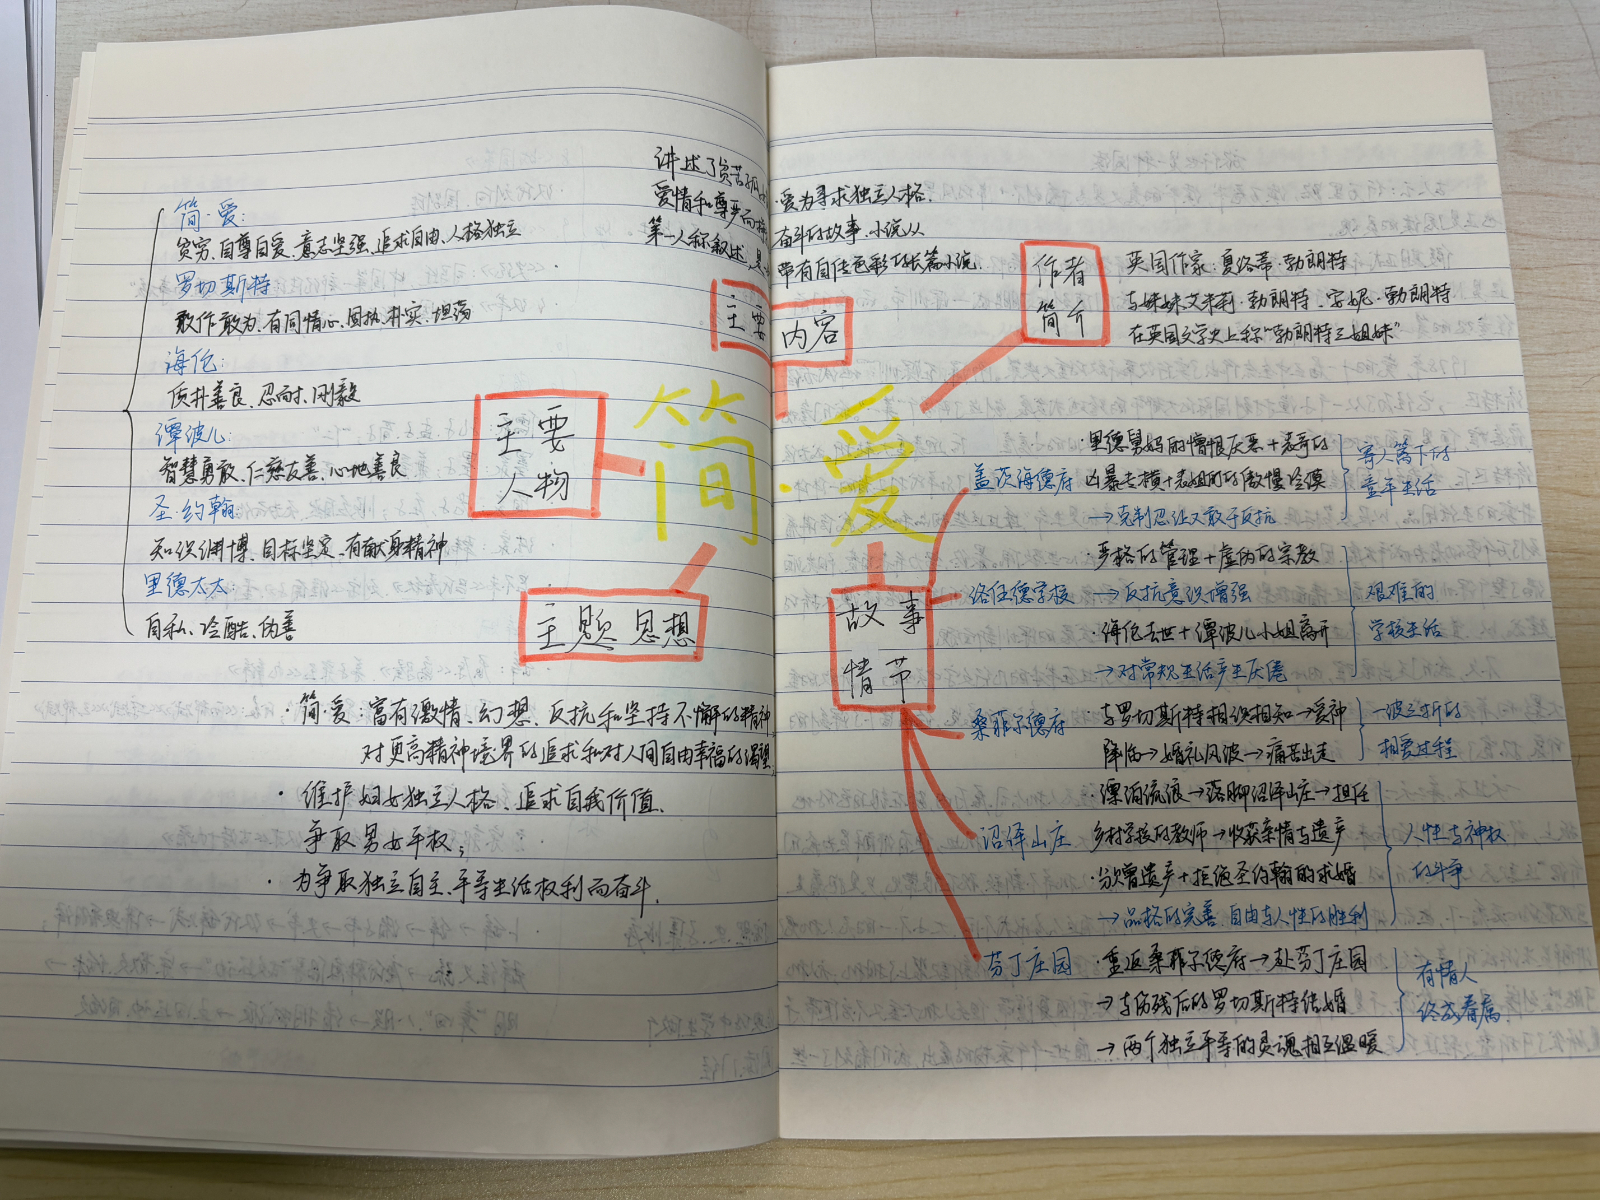 讲述了贫苦孤
爱为寻求独立人格.
爱情和尊严而
奋斗的故事.小说从
第一人称叙述,是
带有自传色彩的长篇小说.
主要内容
作者
简介
英国作家:夏洛蒂·勃朗特
与妹妹艾米莉·勃朗特、安妮·勃朗特
在英国文学史上称“勃朗特三姐妹”
简·爱
主要
人物
简·爱:
贫穷、自尊自爱、意志坚强、追求自由、人格独立
罗切斯特
敢作敢为、有同情心、固执、朴实、坦荡
海伦:
质朴善良、忍耐、刚毅
谭波儿:
智慧勇敢、仁慈友善、心地善良
圣·约翰
知识渊博、目标坚定、有献身精神
里德太太:
自私、冷酷、伪善
主题思想
·简·爱:富有激情、幻想、反抗和坚持不懈的精神
对更高精神境界的追求和对人间自由幸福的渴望
·维护妇女独立人格、追求自我价值.
争取男女平权;
·为争取独立自主、平等生活权利而奋斗.
故事
情节
盖茨海德府
·里德舅妈的憎恨厌恶+表哥的
凶暴专横+表姐们的傲慢冷漠
→克制忍让又敢于反抗
寄人篱下的
童年生活
洛伍德学校
·严格的管理+虚伪的宗教
→反抗意识增强
·海伦去世+谭波儿小姐离开
→对常规生活产生厌倦
艰难的
学校生活
桑菲尔德府
·与罗切斯特相识相知→爱神
降临→婚礼风波→痛苦出走
一波三折的
相爱过程
沼泽山庄
漂泊流浪→落脚沼泽山庄→担任
乡村学校的教师→收获亲情与遗产
·分割遗产+拒绝圣约翰的求婚
→品格的完善.自由与人性的胜利
人性与神权
的斗争
芬丁庄园
·重返桑菲尔德府→赴芬丁庄园
→与伤残后的罗切斯特结婚
→两个独立平等的灵魂相互温暖
有情人
终成眷属